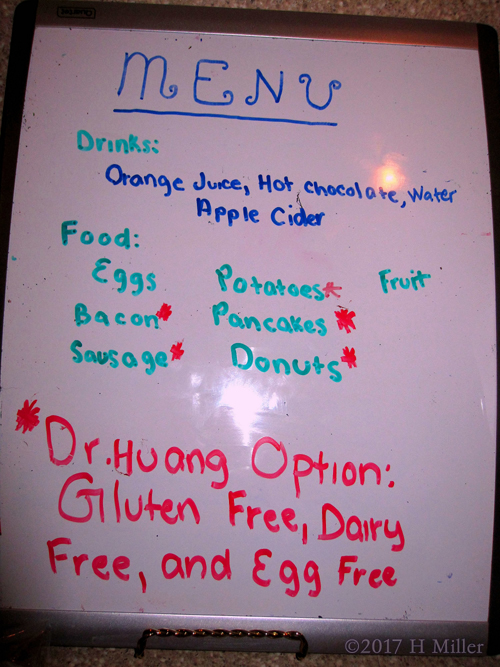 Quartet
MENU
Drinks:
Orange Juice, Hot chocolate, Water
Apple Cider
Food:
Eggs Potatoes* Fruit
Bacon* Pancakes*
Sausage* Donuts*
*Dr. Huang Option:
Gluten Free, Dairy
Free, and Egg Free
©2017 H Miller